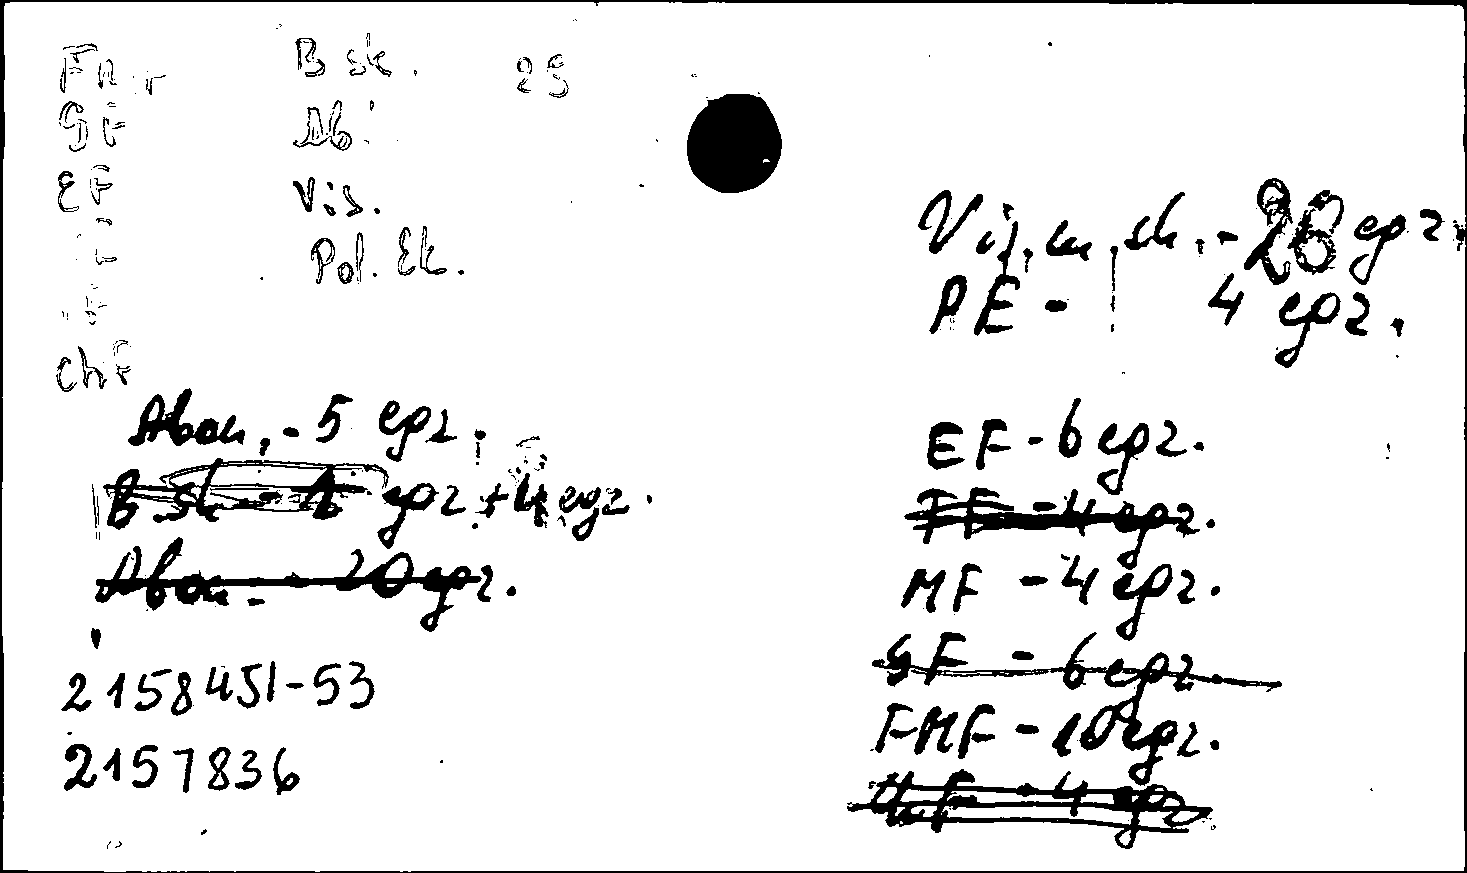 B sk. 25
GF Ab.
EF Vis.
Pol. Ek.
ChF
Vis. m. sk. - 28 egz.
PE - 4 egz.
Abon. - 5 egz.
B sk - egz + 4 egz.
Abon. - 20 egz.
2158451-53
2157836
EF - 6 egz.
FF - 4 egz.
MF - 4 egz.
GF - 6 egz.
FMF - 10 egz.
ChF - 4 egz